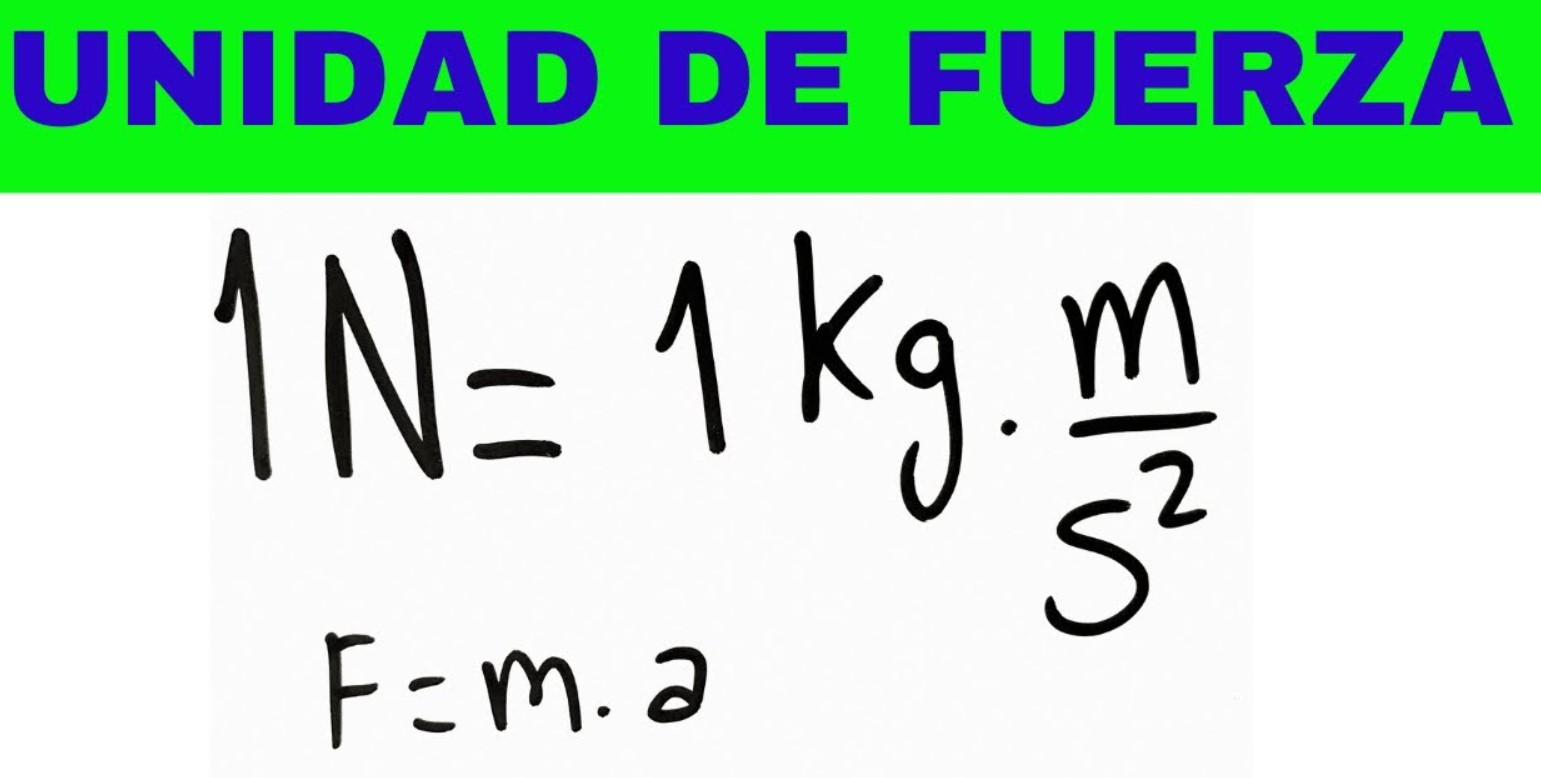 UNIDAD DE FUERZA
1 N = 1 kg . m/s²
F = m . a